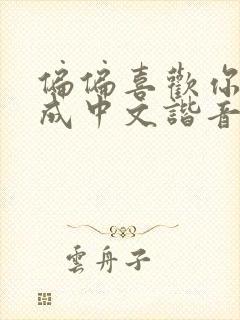 偏偏喜歡你
成中文諧音
雲舟子